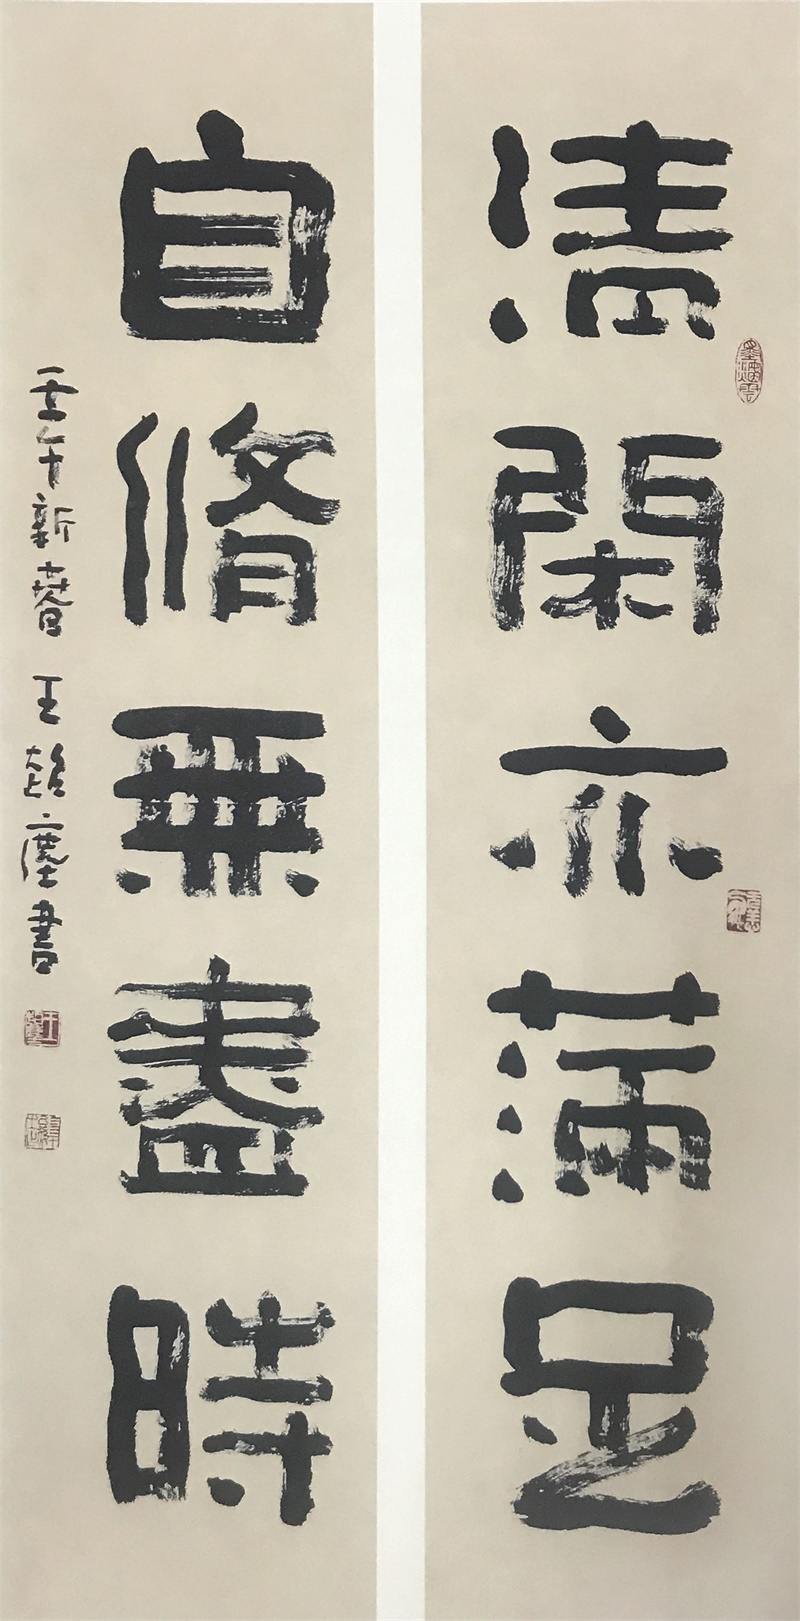 清閑亦滿足
自脩無盡時
壬午新春 王超塵書